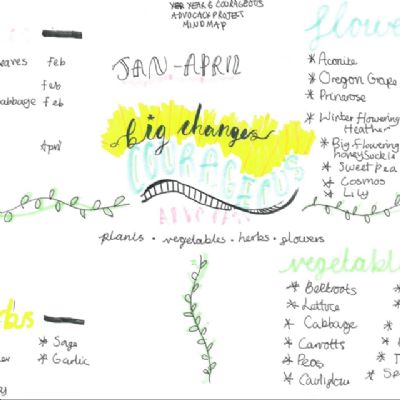 YEAR 6 COURAGEOUS
ADVOCACY PROJECT
MIND MAP
JAN-APRIL
big changes
COURAGEOUS
plants · vegetables · herbs · flowers
feb
feb
cabbage feb
April
flowe
* Aconite
* Oregon Grape
* Primrose
* Winter flowering
Heather
* Big flowering
honeysuckle
* Sweet pea
* Cosmos
* Lily
* Sage
* Garlic
vegetabl
* Beetroots
* Lettuce
* Cabbage
* Carrotts
* Peas
* Cauliglow